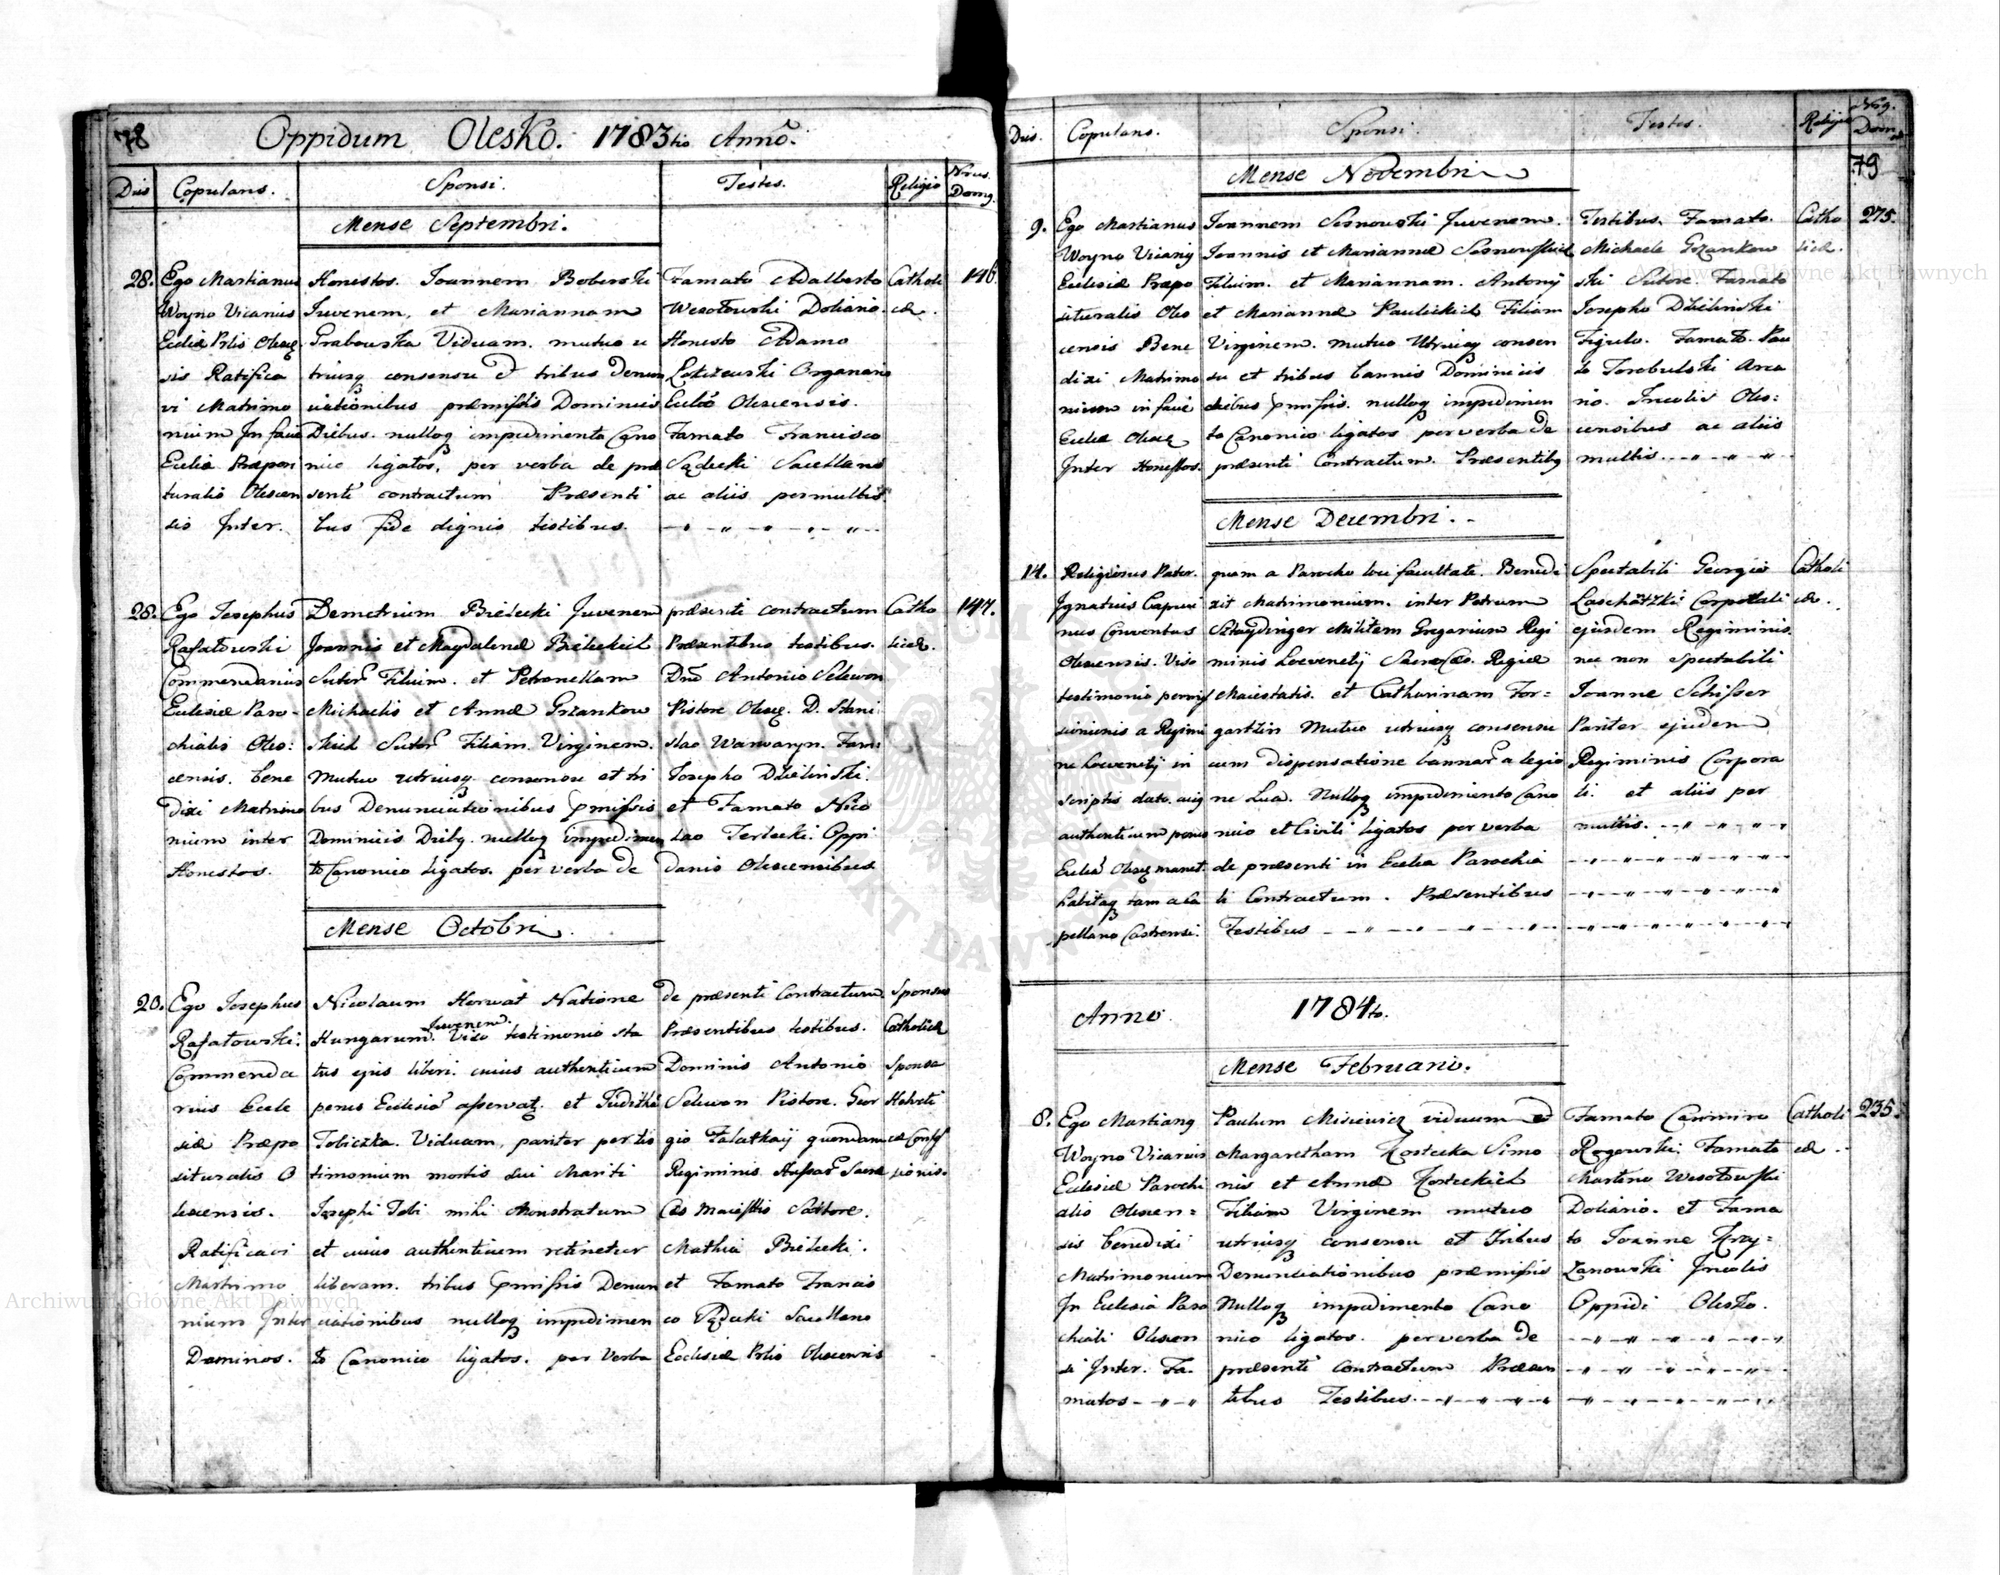 78
Oppidum Olesko. 1783tio Anno.
Dies
Copulans.
Sponsi.
Testes.
Religio
Nrus. Domg.
Mense Septembri.
28.
Ego Martianus
Woyno Vicarius
Eccliæ Pplis Olescq
sis Ratifica
vi Matrimo
nium In facie
Eccliæ Præpon
turalis Olescen
sis Inter.
Honestos. Joannem Boberski
Juvenem, et Mariannam
Grabowska Viduam. mutuo u
triusq consensu et tribus denun
ciationibus præmissis Dominicis
Diebus. nulloq impedimento Cano
nico ligatos, per verba de præ
senti contractum Præsenti
bus fide dignis testibus.
Famato Adalberto
Wesołowski Doliario.
Honesto Adamo
Organario
Ecclæ Olescensis.
Famato Francisco
Sądecki Sacellano
ac aliis permultis
Catholi
cæ.
146.
28.
Ego Josephus
Rafałowski
Commendarius
Ecclesiæ Paro-
chialis Oles:
censis. bene
dixi Matrimo
nium inter
Honestos.
Demetrium Bielecki Juvenem
Joannis et Magdalenæ Bieleckich
Sutor Filium. et Petronellam
Michaelis et Annæ Grzankow
skich Sutor Filiam. Virginem.
Mutuo utriusq consensu et tri
bus Denunciationibus pmissis
Dominicis Diebq. nulloq impedimen
to Canonico ligatos. per verba de
præsenti contractum
Præsentibus testibus.
Dno Antonio Selewon
Pistore Olescq. D. Stani
slao Warwaryn. Fam:
Josepho Dzielinski.
et Famato Nico
lao Terlecki. Oppi
danis Olescensibus
Catho
licæ.
147.
Mense Octobri.
20.
Ego Josephus
Rafałowski.
Commenda
rius Eccle
siæ Præpo
situralis O
lescensis.
Ratificavi
Matrimo
nium Inter
Dominos.
Nicolaum Horwat Natione
Juvenem.
Hungarum. Viso testimonio sta
tus ejus liberi. cuius authenticum
penes Ecclesiã asservatq. et Juditha
Tobiczka. Viduam, pariter per tes
timonium mortis sui Mariti
Josephi Tobi mihi Monstratum
et cuius authenticum retinetur
liberam. tribus pmissis Denun
ciationibus nulloq impedimen
to Canonico ligatos. per Verba
de præsenti Contractum.
Præsentibus testibus.
Dominis Antonio
Selewon Pistore. Geor
gio Falathaÿ quondam
Regiminis Hussar Sacræ
Cæs Maiesttis
Mathia Bielecki.
et Famato Francis
co Sądecki Sacellano
Ecclesiæ Pplis Olescensis
Sponsus
Catholicæ
Sponsa
Helveti
cæ Conff
sionis.
Dies.
Copulans.
Sponsi.
Testes.
Religio
79
Mense Novembri
9.
Ego Martianus
Woyno Vicariq
Ecclesiæ Præpo
situralis Oles
censis Bene
dixi Matrimo
nium in facie
Eccliæ Olescq
Inter Honestos.
Joannem Sosnowski Juvenem.
Joannis et Mariannæ Sosnowskich
Filium. et Mariannam. Antonij
et Mariannæ Pauleckich Filiam
Virginem. mutuo Utriusq consen
su et tribus bannis Dominicis
diebus pmissis. nulloq impedimen
to Canonico ligatos per verba de
præsenti Contractum. Præsentibq
Testibus. Famato.
Michaele Grzankow
ski Sutore. Famato
Josepho Dzielinski
Figulo. Famato. Pau
lo Torobulski Arca
rio. Incolis Oles:
censibus ac aliis
multis.
Catho
licæ.
275.
Mense Decembri.
14.
Religiosus Pater.
Ignatius Capuci
nus Conventus
Olescensis. Viso
testimonio permis
sionis a Regimi
ne Loevenetÿ in
scriptis dato. cuiq
authenticum penes
Eccliã Olescq manet.
habitaq tam a Ca
pellano Castrensi.
quam a Parocho loci facultate. Benedi
xit Matrimonium. inter Petrum
Sztaydinger Militem Gregarium Regi
minis Loevenetÿ Sacræ Cæs. Regiæ
Maiestatis. et Catharinam For=
gartzin Mutuo utriusq consensu
cum dispensatione bannar a legio
ne Lua. Nulloq impedimento Cano
nico et Civili ligatos per verba
de præsenti in Ecclia Parochia
li Contractum. Præsentibus
Testibus
Spectabili Georgio
Laschätzki Corporali
ejusdem Regiminis.
nec non Spectabili
Joanne Schiffer
Pariter ejusdem
Regiminis Corpora
li. et aliis per
multis.
Catholi
cæ.
Anno 1784to.
Mense Februario.
8.
Ego Martianq
Woyno Vicarius
Ecclesiæ Parochi
alis Olescen=
sis benedixi
Matrimonium
In Ecclesia Paro
chiali Olescen
si Inter. Fa-
matos
Paulum Misiewicz viduum et
Margaretham Kostecka Simo
nis et Annæ Kosteckich
Filiam Virginem mutuo
utriusq consensu et Tribus
Denunciationibus præmissis
Nulloq impedimento Cano
nico ligatos. per verba de
præsenti contractum Præsen
tibus Testibus.
Famato Casimiro
Rogowski. Famato
Martino Wesołowski
Doliario. et Fama
to Joanne Krzy=
zanowski Incolis
Oppidi Olesko.
Catholi
cæ.
235.
Archiwum Główne Akt Dawnych
Archiwum Główne Akt Dawnych